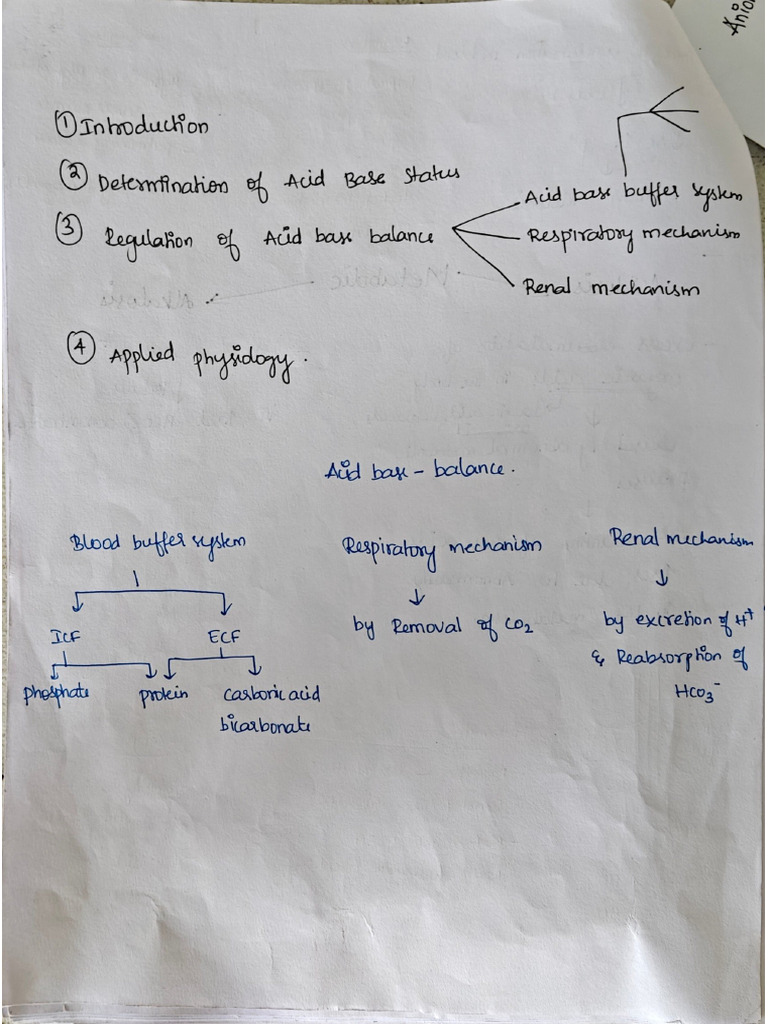 Anio
① Introduction
② Determination of Acid Base Status
③ Regulation of Acid base balance
Acid base buffer system
Respiratory mechanism
Renal mechanism
④ Applied physiology.
Acid base - balance.
Blood buffer system
ICF ECF
phosphate protein carbonic acid
bicarbonate
Respiratory mechanism
by Removal of CO₂
Renal mechanism
by excretion of H⁺
& Reabsorption of
HCO₃⁻
Metabolic